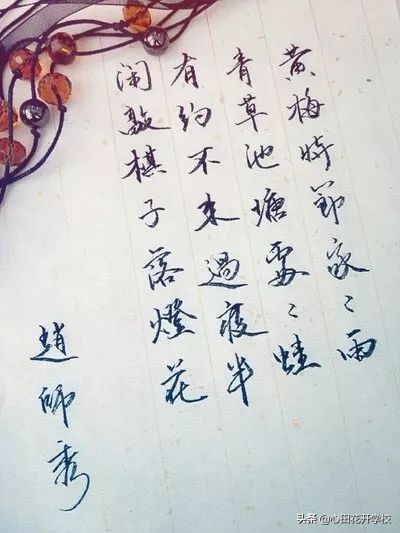 黄梅時節家〻雨
青草池塘處〻蛙
有约不来過夜半
闲敲棋子落燈花
趙師秀
头条 @心田花开学校